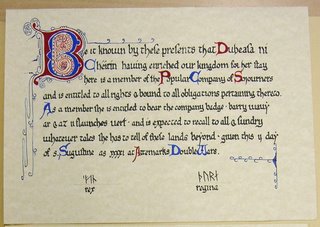 Be it known by these presents that Dubeasa ni
Cheirin having enriched our kingdom for her stay
here is a member of the Popular Company of Sojourners
and is entitled to all rights & bound to all obligations pertaining thereto.
As a member she is entitled to bear the company badge · barry wavy
ar & az ii flaunches vert · and is expected to recall to all & sundry
whatever tales she has to tell of these lands beyond · given this day
of s. as xxxi at Double Wars.
rex regina